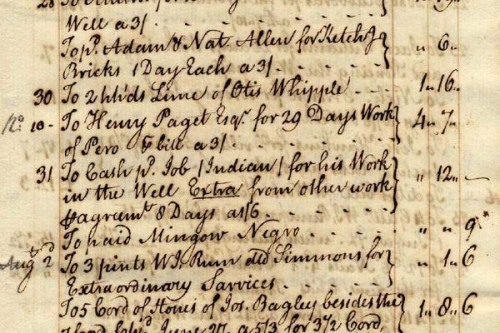 Well a 3/.
To pd. Adam & Nat. Allen for Ketchg
Bricks 1 Day Each a 3/. - - - " 6 "
30 To 2 hhds Lime of Otis Whipple - - - 1 " 16 "
No. 10 - To Henry Paget Esqr. for 29 Days Work
of Pero ⅌ bill a 3/. - - - 4 " 7 "
31 To Cash pd. Job (Indian) for his Work
in the Well Extra from other work
⅌ agreemt. 8 Days a 1/6 - - - " 12 " -
To paid Mingow Negro - - - " " 9
Augt. 2d To 3 pints W. I. Rum dd Simmons for
Extraordinary Sarvices - - - " 1 " 6
To 5 Cord of Stones of Jos. Bagley besides the
June 27. a 5/3 for 3 1/2 Cord, 1 " 8 " 6